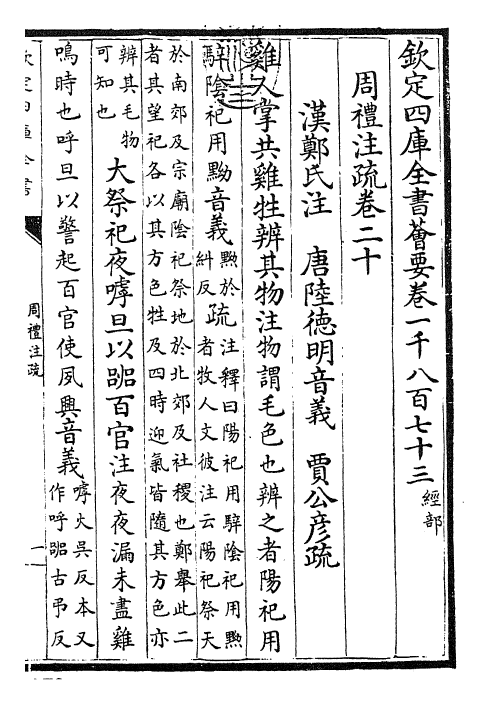 欽定四庫全書薈要卷一千八百七十三 經部
周禮注疏卷二十
漢鄭氏注 唐陸德明音義 賈公彦疏
雞人掌共雞牲辨其物注物謂毛色也辨之者陽祀用
騂陰祀用黝音義黝於
糾反疏注釋曰陽祀用騂陰祀用黝
者牧人文彼注云陽祀祭天
於南郊及宗廟陰祀祭地於北郊及社稷也鄭舉此二
者其望祀各以其方色牲及四時迎氣皆隨其方色亦
辨其毛物
可知也 大祭祀夜嘑旦以㗊百官注夜夜漏未盡雞
鳴時也呼旦以警起百官使夙興音義嘑火吳反本又
作呼㗊古弔反
周禮注疏
一